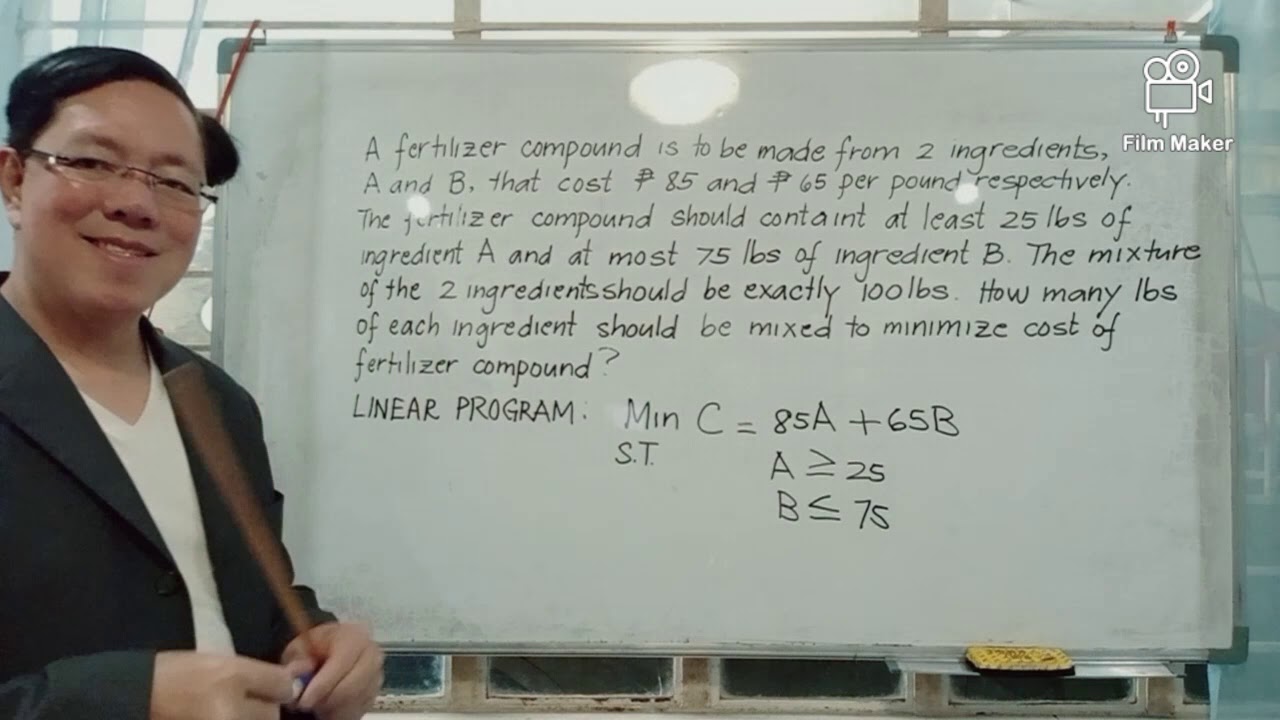 A fertilizer compound is to be made from 2 ingredients,
A and B, that cost ₱ 85 and ₱ 65 per pound respectively.
The fertilizer compound should containt at least 25 lbs of
ingredient A and at most 75 lbs of ingredient B. The mixture
of the 2 ingredients should be exactly 100 lbs. How many lbs
of each ingredient should be mixed to minimize cost of
fertilizer compound?
LINEAR PROGRAM: Min C = 85A + 65B
S.T. A ≥ 25
B ≤ 75
Film Maker